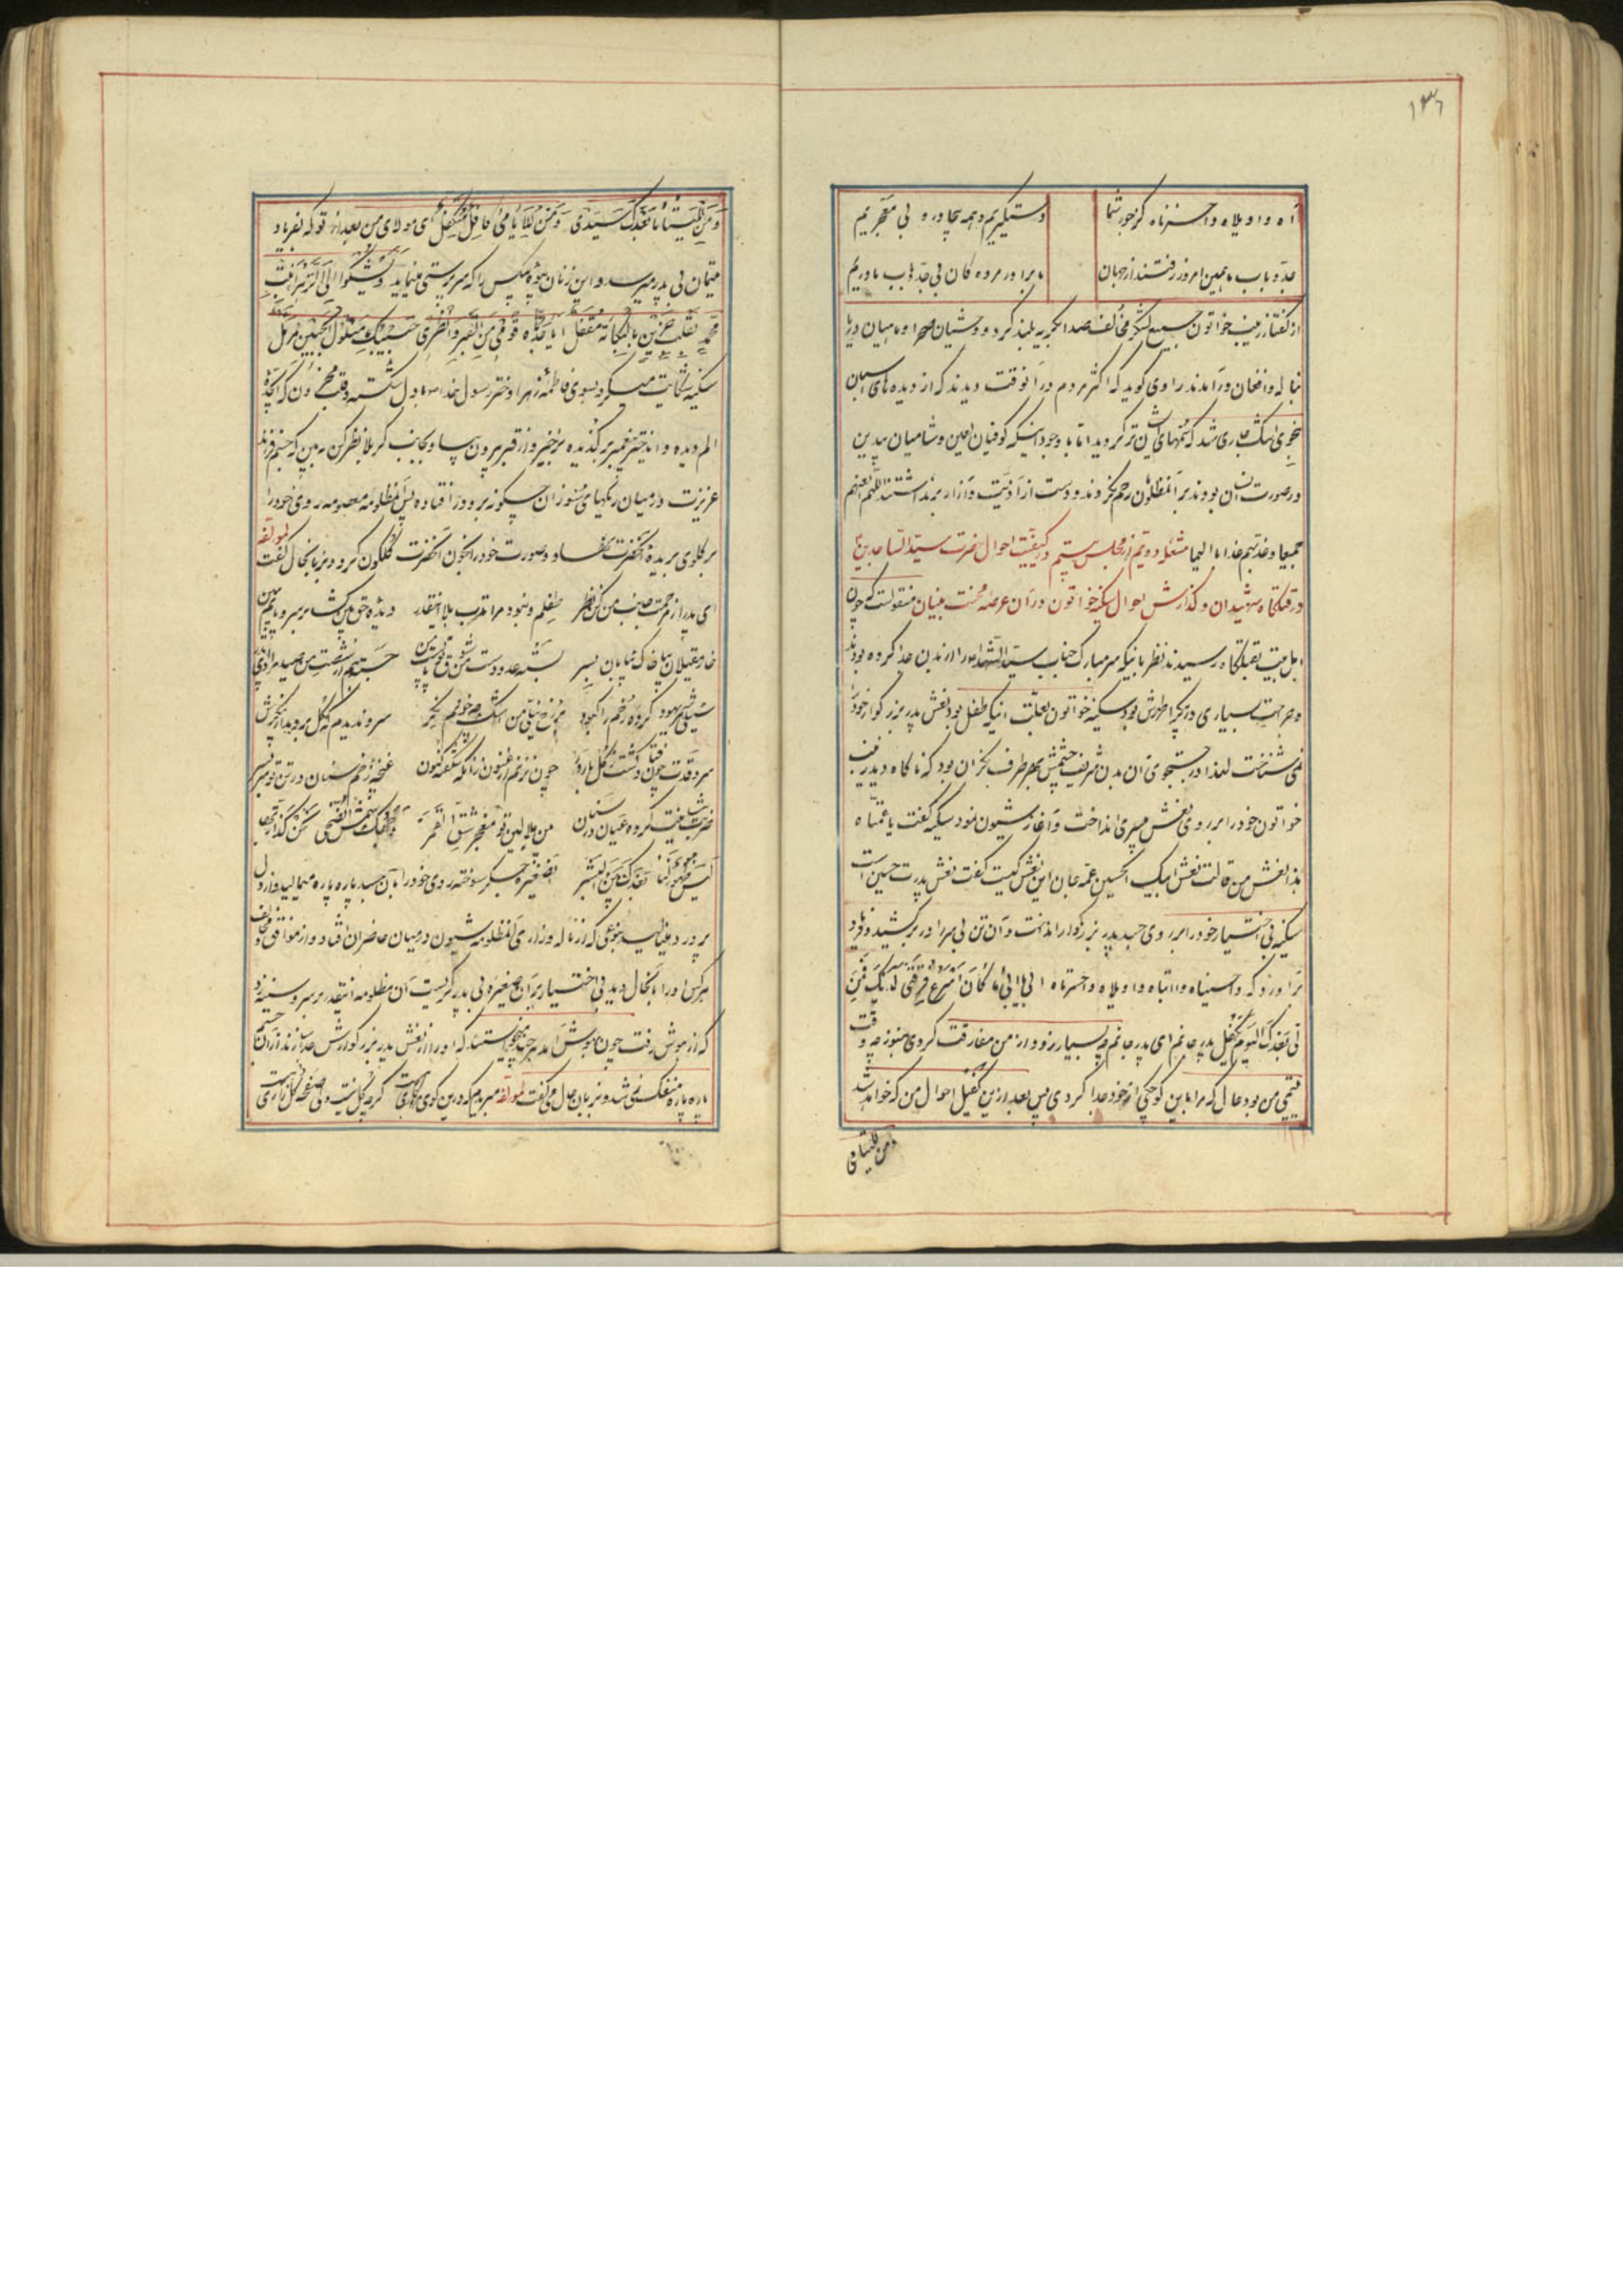 ۱۳۶
آه و اویلاه واحسرتاه کز جور شما
دستگیریم و همه بیچادر و بی معجریم
جد و باب ما همین امروز رفتند از جهان
ما برادر مرده کان بی جد و باب و مادریم
از گفتار زینب خواتون جمیع لشکر مخالف صدا بگریه بلند کردند و وحشیان صحرا و ماهیان دریا
بناله و افغان در آمدند راوی گوید که اکثر مردم در آنوقت دیدند که از دیده های اسبان
بنحوی اشک جاری شد که سمهای ایشان تر گردید اما با وجود اینکه کوفیان لعین و شامیان بیدین
در صورت انسان بودند بر آن مظلومان رحم نکردند و دست از اذیت و آزار برنداشتند اللهم العنهم
جمیعا و عذبهم عذابا الیما مشعله دویم از مجلس بیستم در کیفیت احوال حضرت سید الساجدین
در قتلگاه شهیدان و گذارش احوال سکینه خواتون در آن عرصه محنت بنیان منقولست که چون
اهل بیت بقتلگاه رسیدند نظر باینکه سر مبارک جناب سید الشهدا را از بدن جدا کرده بودند
و جراحت بسیاری در پیکر اطهرش بود سکینه خواتون بعلت اینکه طفل بود نعش پدر بزرگوار خود را
نمی شناخت لهذا در جستجوی آن بدن شریف چشمش بهر طرف نگران بود که ناگاه دید زینب
خواتون خود را بر روی نعش بی سری انداخت و آغاز شیون نمود سکینه گفت یا عمتاه
هذا نعش من قالت نعش ابیک الحسین عمه جان این نعش کیست گفت نعش پدرت حسین است
سکینه بی اختیار خود را بر روی جسد پدر بزرگوار انداخت و آن تن بی سر را در بر کشید و فریاد
بر آورد که واحسیناه وا ابتاه و اویلاه واحسرتاه ابی ابی ما کان اسرع فرقتی لدیک فمن
لی بعدک الیوم یکفل پدر جانم ای پدر جانم چه بسیار زود از من مفارقت کردی هنوز چه وقت
یتیمی من بود حال که مرا باین کوچکی از خود جدا کردی پس بعد ازین کفیل احوال من که خواهد شد
ومن للیتامی
ومن للیتامی بعدک سیدی ومن للایامی کافل متکفل ای مولای من بعد از تو که بفریاد
یتیمان بی پدر میرسد و این زنان بیوه بیکس را که سرپرستی مینماید وتشکوا الی الزهراء بنت
محمد بقلب حزین بالبکآء مقفل ایا جدتاه قومی من القبر وانظری حبیبک متلول الجبین مرمل
سکینه شکایت میکرد بسوی فاطمه زهرا دختر رسول خدا با دل شکسته و قلب محزون که ای جده
الم دیده و ای دختر پیغمبر برگزیده برخیز و از قبر بیرون بیا و بجانب کربلا نظر کن ببین که جسم فرزند
عزیزت در میان ریگهای سوزان چگونه برو در افتاده پس آن مظلومه معصومه روی خود را
بر گلوی بریده آنحضرت نهاد و صورت خود را بخون آنحضرت گلگون کرد و بزبانحال گفت لمولفه
ای پدر از مرحمت جانب من کن نظر
طفلم و نبود مرا تدرب بلا اینقدر
خار مغیلان بپا خاک بیابان بسر
سیلی شمر یهود کرده رخم را کبود
سرو ندیدم که گل بر دمد از پیکرش
سرو قدت چون فتاد گشت گل بارور
غنچه زخم سنان در تن تو سر بسر
لیس ظهور لنا بعدک بین البشر
آن صغیره جگر سوخته روی خود را بآن جسد پاره پاره میمالید و از دل
پر درد مینالید بنوعی که از ناله و زاری آن مظلومه شیون در میان حاضران افتاد و از موافق و مخالف
هر کس او را بآنحال دید بی اختیار بر آن صغیره بی پدر گریست آن مظلومه اینقدر بر سر و سینه زد
که از هوش رفت چون بهوش آمد هر چند میخواستند که او را از نعش پدر بزرگوارش جدا سازند از آن جسم
پاره پاره منفک نمی شد و بزبان حال می گفت لمولفه میروم که درین کوی